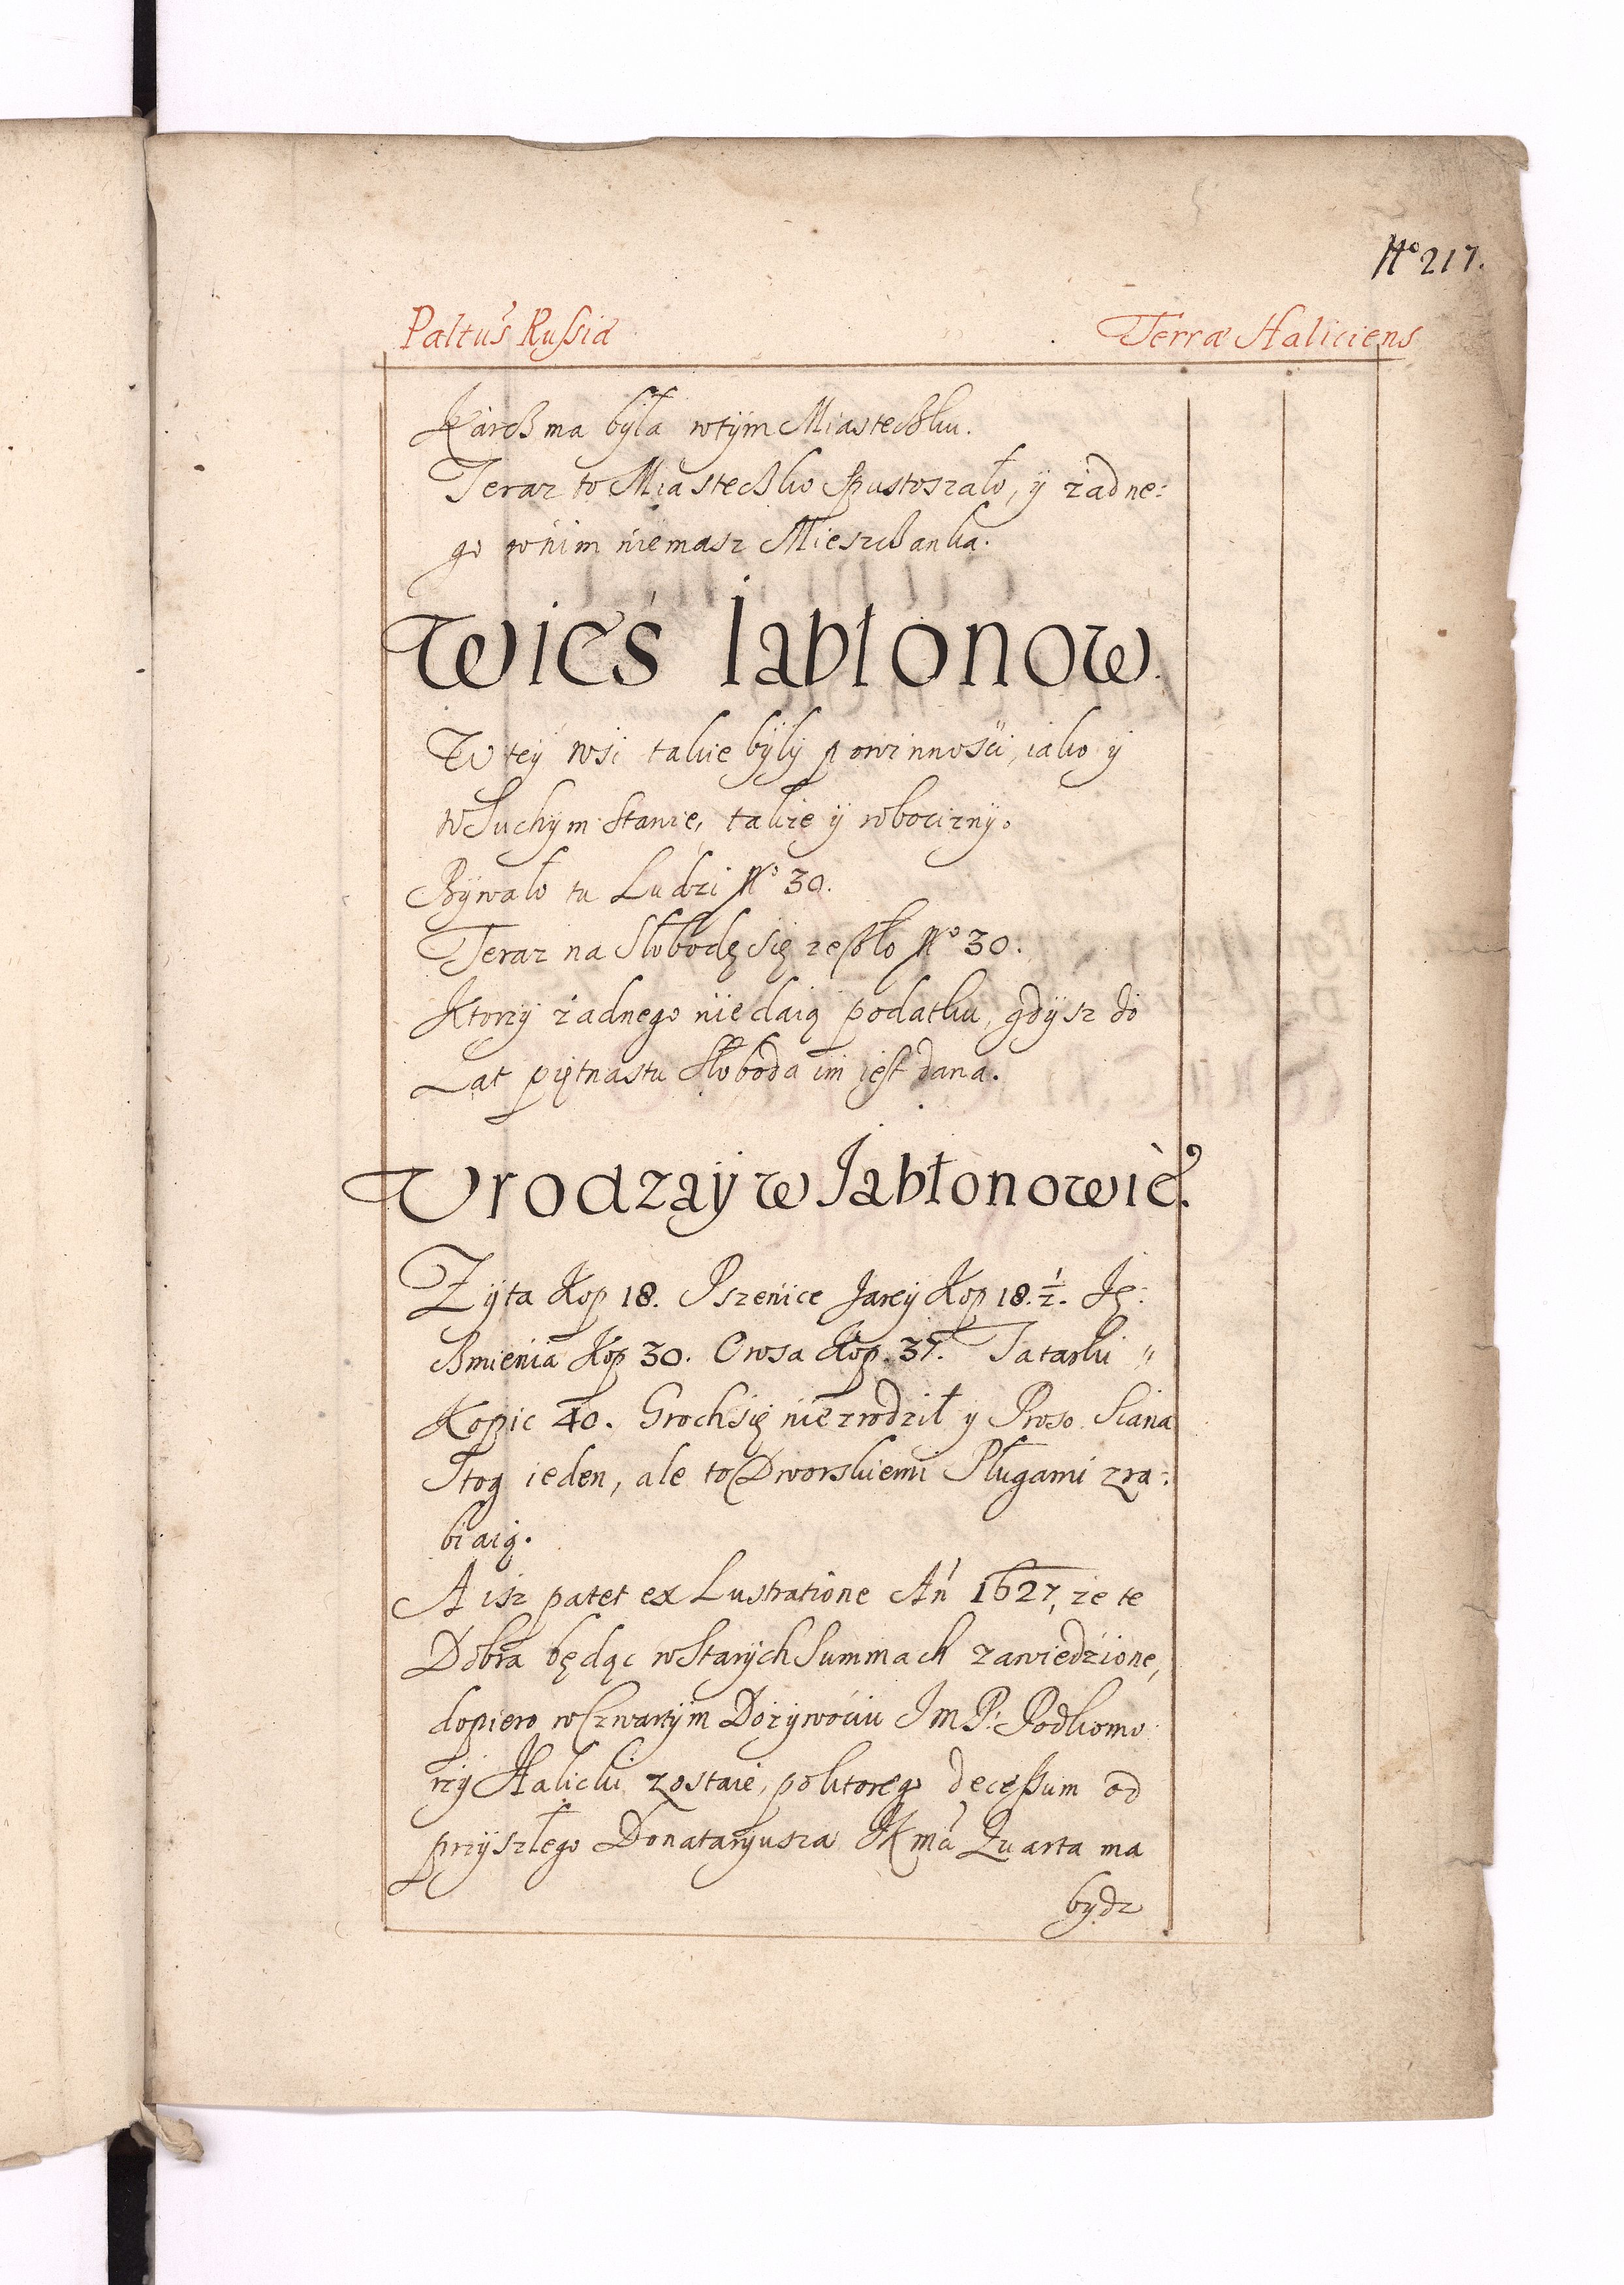 No 217.
Paltus Russiæ Terræ Haliciens
Karczma była w tym Miasteczku.
Teraz to Miasteczko spustoszało, y żadne:
go w nim niemasz Mieszczanka.
Wieś Iabłonow.
W tey wsi takie były powinności, iako y
w Suchym Stawie, także y robocizny.
Bywało tu Ludzi No 30.
Teraz na Słobodę się zeszło No 30.
Ktorzy żadnego nie daią podatku, gdysz do
Lat piętnastu Słoboda im iest dana.
Vrodzay w Jabłonowie.
Zyta Kop 18. Pszenice Jarey Kop 18. ½. Ję:
czmienia Kop 30. Owsa Kop. 37. Tatarki "
Kopic 40. Groch się nie zrodził y Proso. Siana
Stog ieden, ale to Dworskiemi Pługami zra:
biaią.
A isz patet ex Lustratione An 1627, że te
Dobra będąc w Starych Summach zawiedzione,
dopiero w Czwartym Dożywociu Jm P: Podkomo
rzy Halicki zostaie, po ktorego decessum od
przyszłego Donataryusza JKmci Quarta ma
bydz